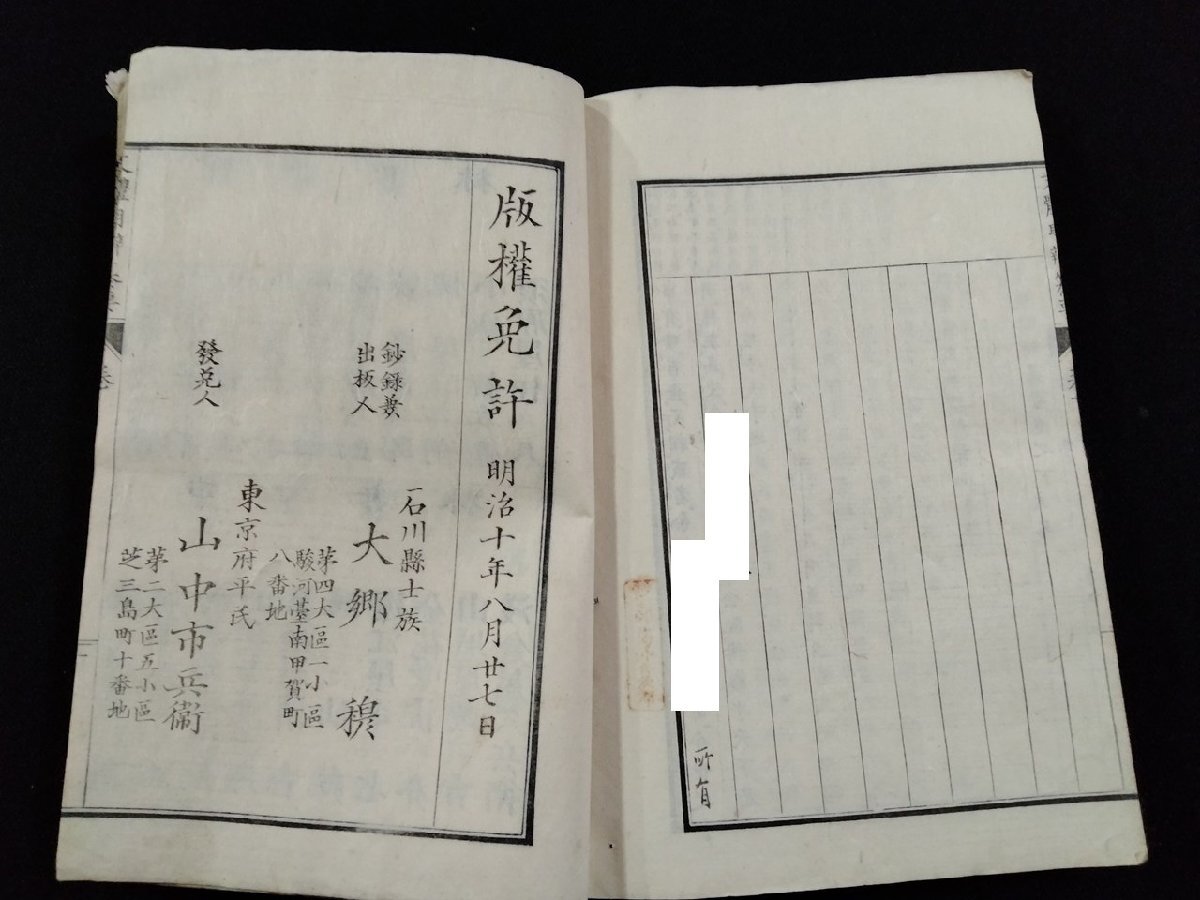 版權免許 明治十年八月廿七日
石川縣士族
鈔録兼
出板人
大郷 穆
苐四大區一小區
駿河䑓南甲賀町
八番地
東京府平民
發兌人
山中市兵衞
苐二大區五小區
芝三島町十番地
所有